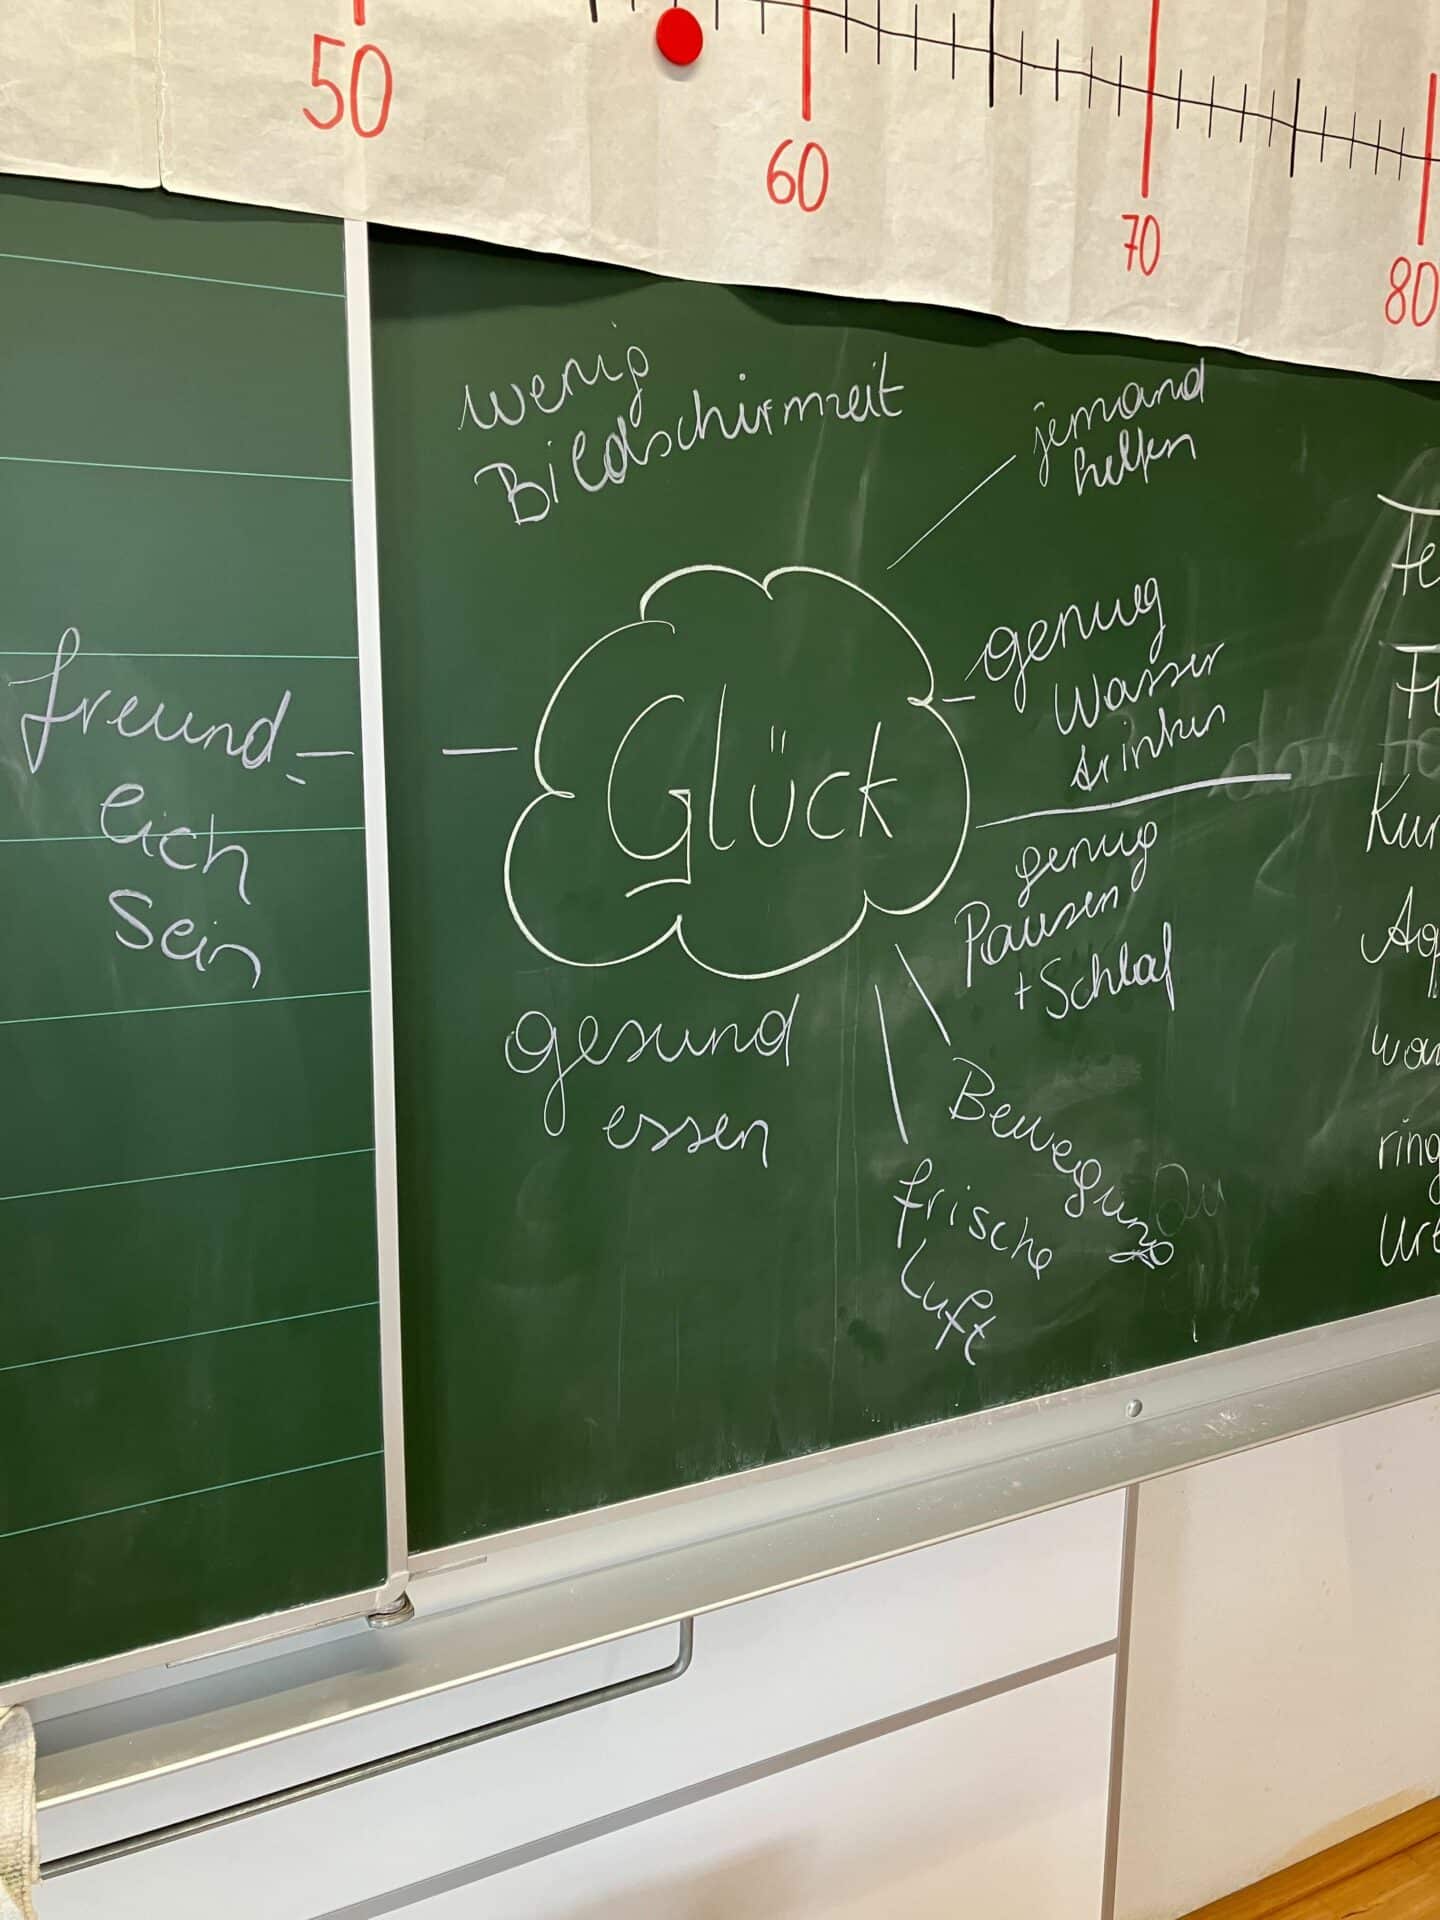 50
60
70
80
wenig
Bildschirmzeit
jemand
helfen
genug
Wasser
trinken
freund-
lich
sein
Glück
genug
Pausen
+ Schlaf
gesund
essen
Bewegung
frische
Luft